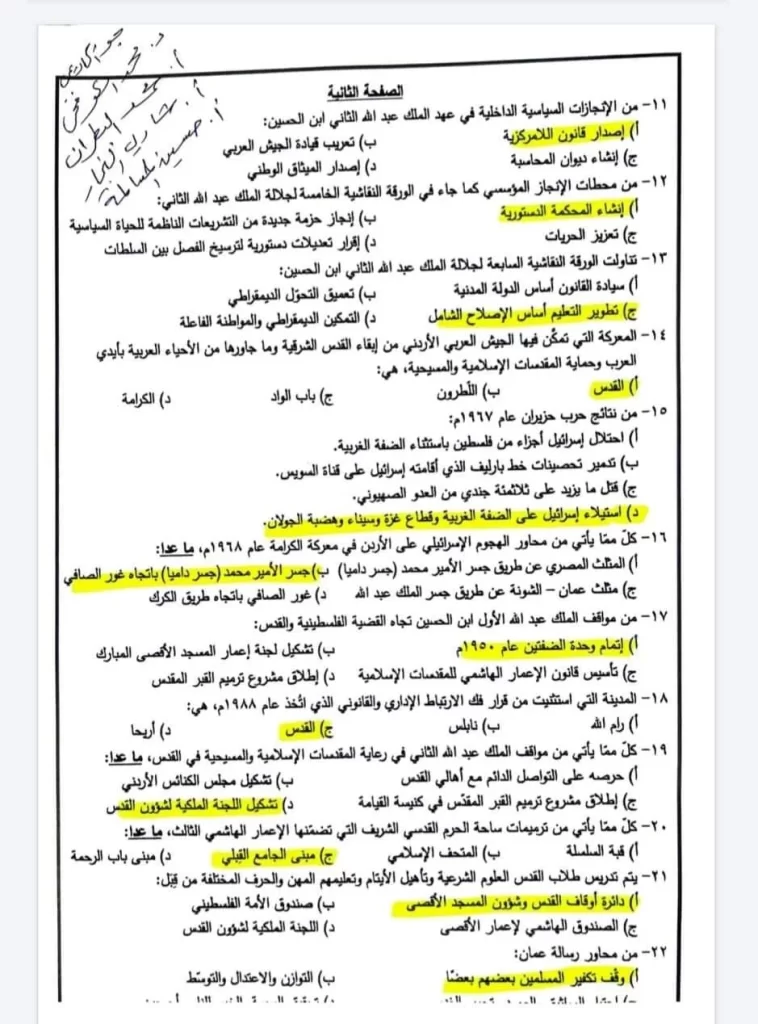 د. محمد
الصفحة الثانية
١١- من الإنجازات السياسية الداخلية في عهد الملك عبد الله الثاني ابن الحسين:
أ) إصدار قانون اللامركزية ب) تعريب قيادة الجيش العربي
ج) إنشاء ديوان المحاسبة د) إصدار الميثاق الوطني
١٢- من محطات الإنجاز المؤسسي كما جاء في الورقة النقاشية الخامسة لجلالة الملك عبد الله الثاني:
أ) إنشاء المحكمة الدستورية ب) إنجاز حزمة جديدة من التشريعات الناظمة للحياة السياسية
ج) تعزيز الحريات د) إقرار تعديلات دستورية لترسيخ الفصل بين السلطات
١٣- تناولت الورقة النقاشية السابعة لجلالة الملك عبد الله الثاني ابن الحسين:
أ) سيادة القانون أساس الدولة المدنية ب) تعميق التحوّل الديمقراطي
ج) تطوير التعليم أساس الإصلاح الشامل د) التمكين الديمقراطي والمواطنة الفاعلة
١٤- المعركة التي تمكّن فيها الجيش العربي الأردني من إبقاء القدس الشرقية وما جاورها من الأحياء العربية بأيدي
العرب وحماية المقدسات الإسلامية والمسيحية، هي:
أ) القدس ب) اللّطرون ج) باب الواد د) الكرامة
١٥- من نتائج حرب حزيران عام ١٩٦٧م:
أ) احتلال إسرائيل أجزاء من فلسطين باستثناء الضفة الغربية.
ب) تدمير تحصينات خط بارليف الذي أقامته إسرائيل على قناة السويس.
ج) قتل ما يزيد على ثلاثمئة جندي من العدو الصهيوني.
د) استيلاء إسرائيل على الضفة الغربية وقطاع غزة وسيناء وهضبة الجولان.
١٦- كلّ ممّا يأتي من محاور الهجوم الإسرائيلي على الأردن في معركة الكرامة عام ١٩٦٨م، ما عدا:
أ) المثلث المصري عن طريق جسر الأمير محمد (جسر داميا) ب) جسر الأمير محمد (جسر داميا) باتجاه غور الصافي
ج) مثلث عمان – الشونة عن طريق جسر الملك عبد الله د) غور الصافي باتجاه طريق الكرك
١٧- من مواقف الملك عبد الله الأول ابن الحسين تجاه القضية الفلسطينية والقدس:
أ) إتمام وحدة الضفتين عام ١٩٥٠م ب) تشكيل لجنة إعمار المسجد الأقصى المبارك
ج) تأسيس قانون الإعمار الهاشمي للمقدسات الإسلامية د) إطلاق مشروع ترميم القبر المقدس
١٨- المدينة التي استثنيت من قرار فك الارتباط الإداري والقانوني الذي اتُخذ عام ١٩٨٨م، هي:
أ) رام الله ب) نابلس ج) القدس د) أريحا
١٩- كلّ ممّا يأتي من مواقف الملك عبد الله الثاني في رعاية المقدسات الإسلامية والمسيحية في القدس، ما عدا:
أ) حرصه على التواصل الدائم مع أهالي القدس ب) تشكيل مجلس الكنائس الأردني
ج) إطلاق مشروع ترميم القبر المقدّس في كنيسة القيامة د) تشكيل اللجنة الملكية لشؤون القدس
٢٠- كلّ ممّا يأتي من ترميمات ساحة الحرم القدسي الشريف التي تضمّنها الإعمار الهاشمي الثالث، ما عدا:
أ) قبة السلسلة ب) المتحف الإسلامي ج) مبنى الجامع القِبلي د) مبنى باب الرحمة
٢١- يتم تدريس طلاب القدس العلوم الشرعية وتأهيل الأيتام وتعليمهم المهن والحرف المختلفة من قِبَل:
أ) دائرة أوقاف القدس وشؤون المسجد الأقصى ب) صندوق الأمة الفلسطيني
ج) الصندوق الهاشمي لإعمار الأقصى د) اللجنة الملكية لشؤون القدس
٢٢- من محاور رسالة عمان:
أ) وقْف تكفير المسلمين بعضهم بعضًا ب) التوازن والاعتدال والتوسّط